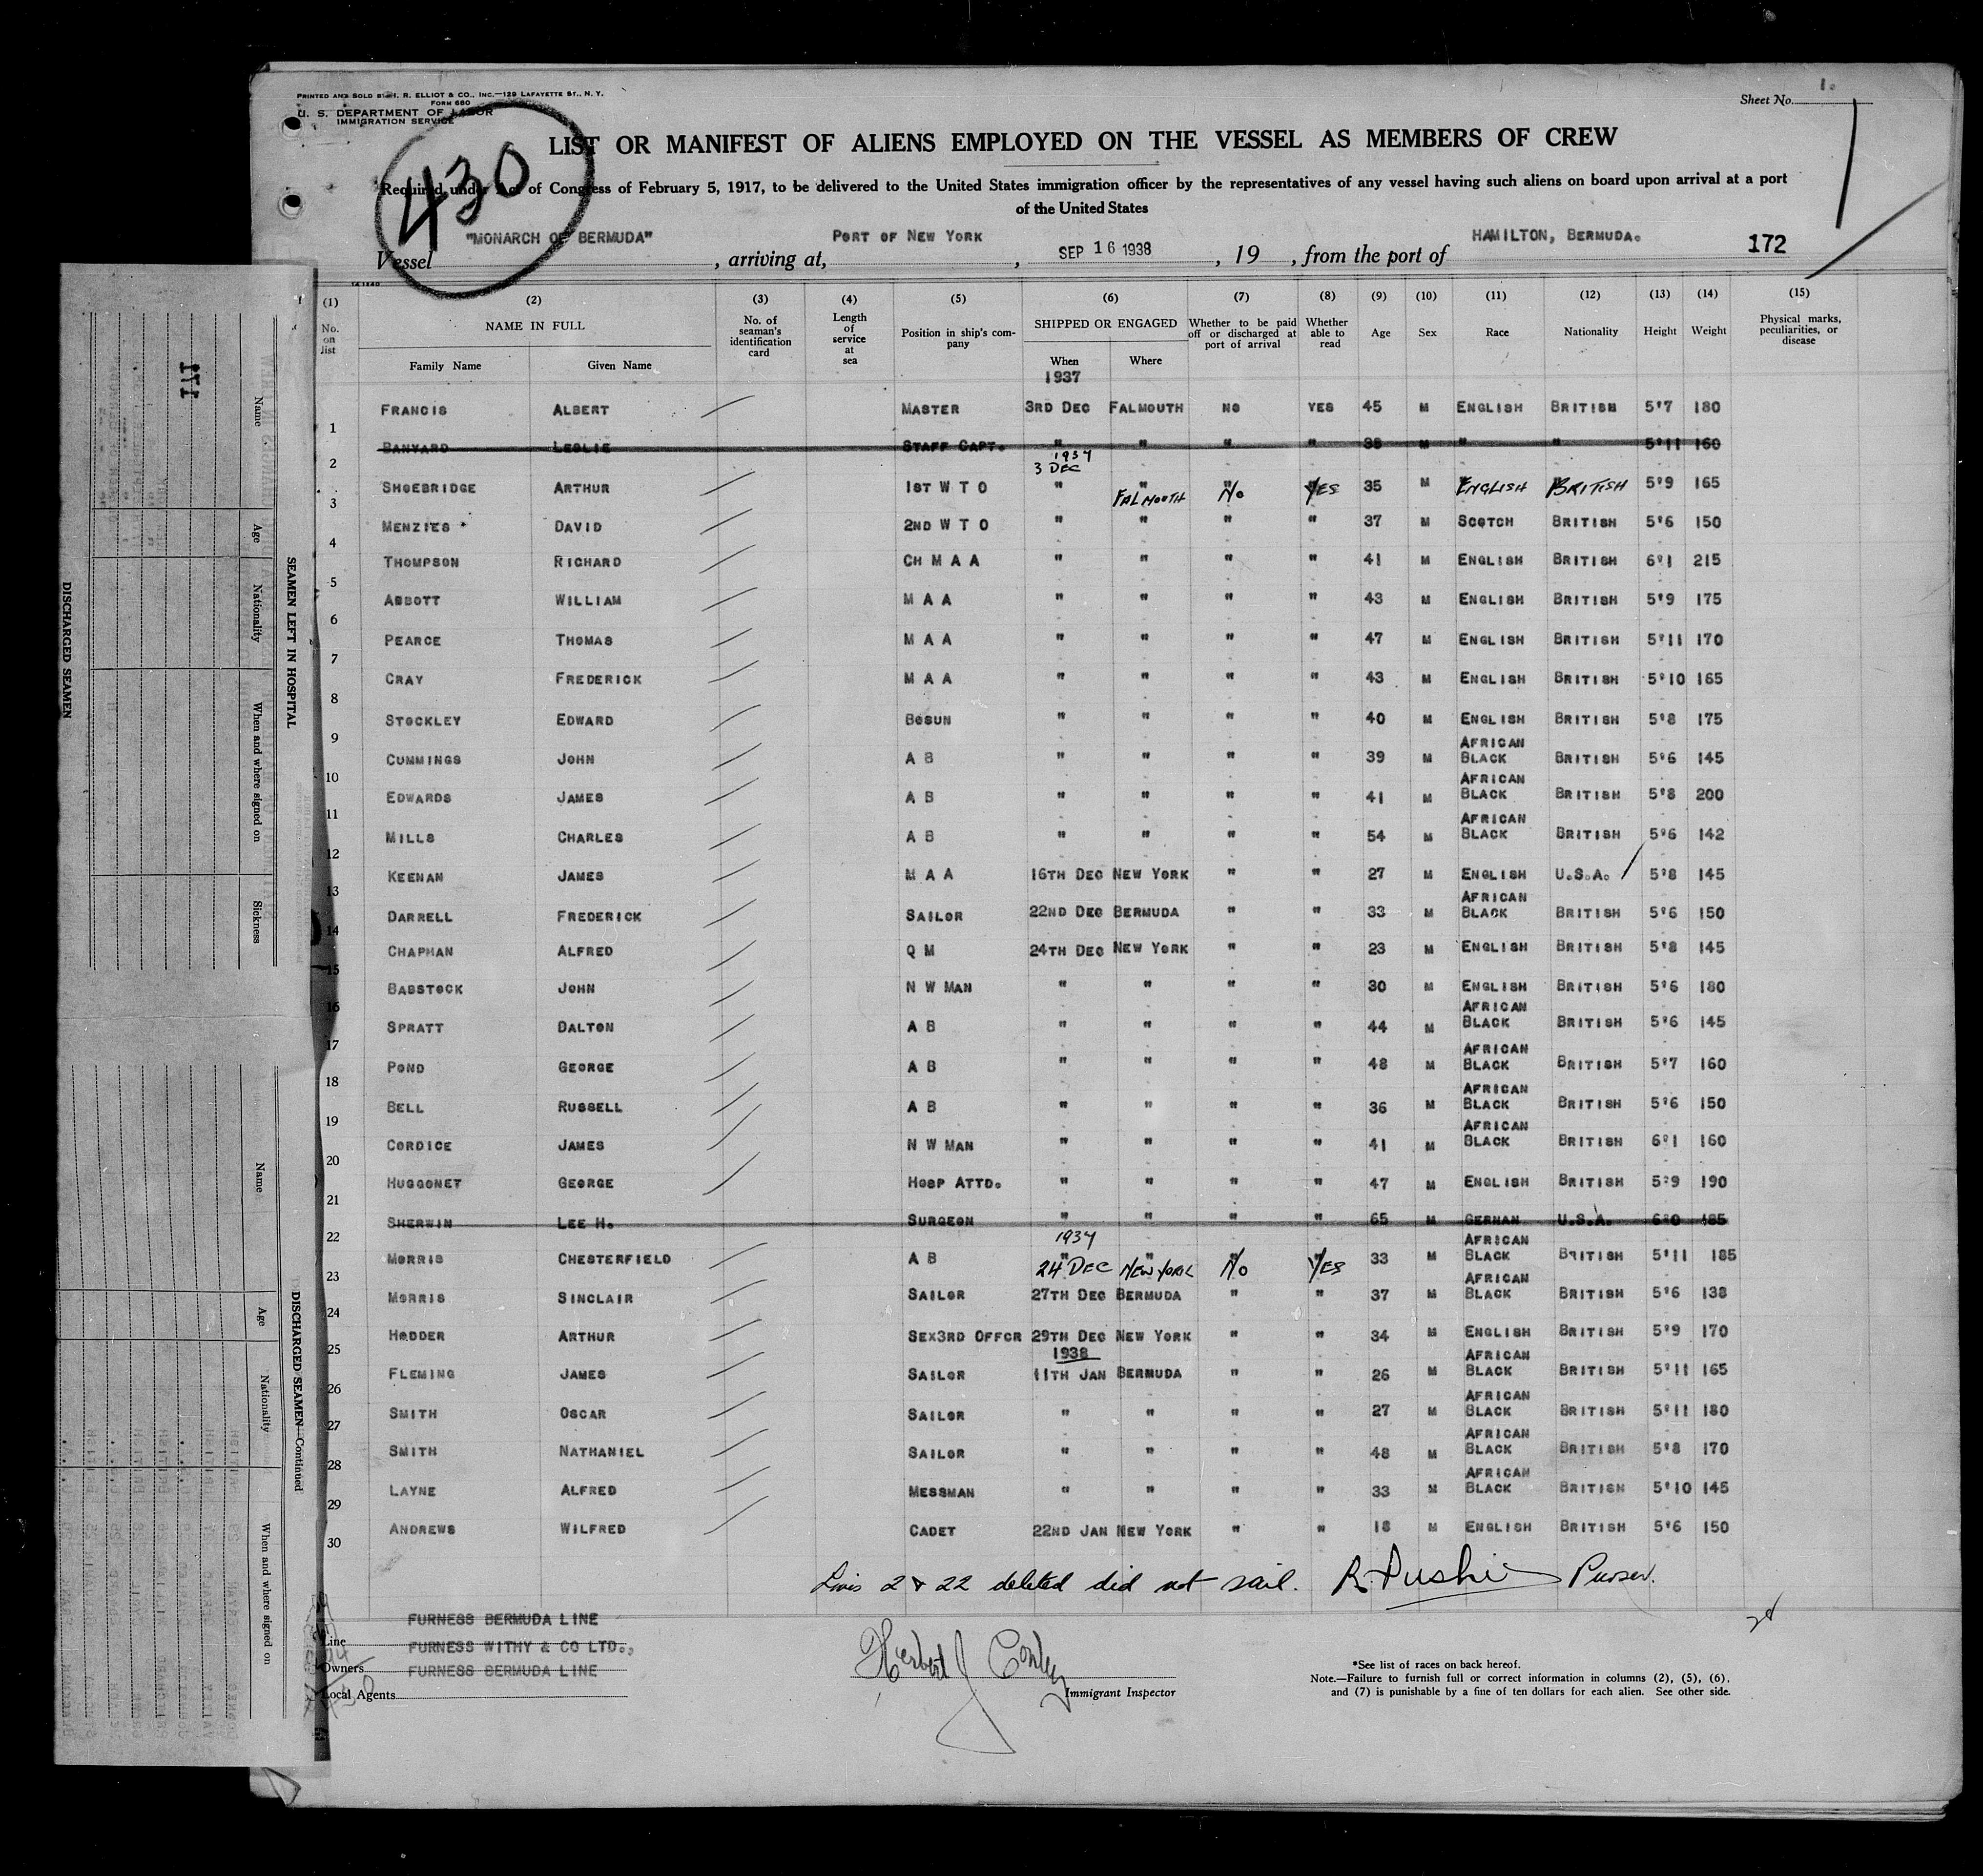 PRINTED AND SOLD BY I. R. ELLIOT & CO., INC.—129 LAFAYETTE ST., N. Y.
FORM 680
U. S. DEPARTMENT OF LABOR
IMMIGRATION SERVICE
Sheet No. 1.
430
LIST OR MANIFEST OF ALIENS EMPLOYED ON THE VESSEL AS MEMBERS OF CREW
Required under Act of Congress of February 5, 1917, to be delivered to the United States immigration officer by the representatives of any vessel having such aliens on board upon arrival at a port
of the United States
Vessel "MONARCH OF BERMUDA", arriving at, PORT OF NEW YORK, SEP 16 1938, 19 , from the port of HAMILTON, BERMUDA. 172
(1) (2) (3) (4) (5) (6) (7) (8) (9) (10) (11) (12) (13) (14) (15)
No. on list NAME IN FULL No. of seaman's identification card Length of service at sea Position in ship's company SHIPPED OR ENGAGED Whether to be paid off or discharged at port of arrival Whether able to read Age Sex Race Nationality Height Weight Physical marks, peculiarities, or disease
Family Name Given Name When Where
1937
1 FRANCIS ALBERT MASTER 3RD DEC FALMOUTH NO YES 45 M ENGLISH BRITISH 5'7 180
2 BANYARD LESLIE STAFF CAPT. " " " " 38 M " " 5'11 160
1937
3 DEC
3 SHOEBRIDGE ARTHUR 1ST W T O " FALMOUTH No YES 35 M ENGLISH BRITISH 5'9 165
4 MENZIES DAVID 2ND W T O " " " " 37 M SCOTCH BRITISH 5'6 150
5 THOMPSON RICHARD CH M A A " " " " 41 M ENGLISH BRITISH 6'1 215
6 ABBOTT WILLIAM M A A " " " " 43 M ENGLISH BRITISH 5'9 175
7 PEARCE THOMAS M A A " " " " 47 M ENGLISH BRITISH 5'11 170
8 CRAY FREDERICK M A A " " " " 43 M ENGLISH BRITISH 5'10 165
9 STOCKLEY EDWARD BOSUN " " " " 40 M ENGLISH BRITISH 5'8 175
10 CUMMINGS JOHN A B " " " " 39 M AFRICAN BLACK BRITISH 5'6 145
11 EDWARDS JAMES A B " " " " 41 M AFRICAN BLACK BRITISH 5'8 200
12 MILLS CHARLES A B " " " " 54 M AFRICAN BLACK BRITISH 5'6 142
13 KEENAN JAMES M A A 16TH DEC NEW YORK " " 27 M ENGLISH U.S.A. 5'8 145
14 DARRELL FREDERICK SAILOR 22ND DEC BERMUDA " " 33 M AFRICAN BLACK BRITISH 5'6 150
15 CHAPMAN ALFRED Q M 24TH DEC NEW YORK " " 23 M ENGLISH BRITISH 5'8 145
16 BABSTOCK JOHN N W MAN " " " " 30 M ENGLISH BRITISH 5'6 180
17 SPRATT DALTON A B " " " " 44 M AFRICAN BLACK BRITISH 5'6 145
18 POND GEORGE A B " " " " 48 M AFRICAN BLACK BRITISH 5'7 160
19 BELL RUSSELL A B " " " " 36 M AFRICAN BLACK BRITISH 5'6 150
20 CORDICE JAMES N W MAN " " " " 41 M AFRICAN BLACK BRITISH 6'1 160
21 HUGGONET GEORGE HOSP ATTD. " " " " 47 M ENGLISH BRITISH 5'9 190
22 SHERWIN LEE H. SURGEON " " " " 65 M GERMAN U.S.A. 6'0 185
1937
23 MORRIS CHESTERFIELD A B 24 DEC NEW YORK No YES 33 M AFRICAN BLACK BRITISH 5'11 185
24 MORRIS SINCLAIR SAILOR 27TH DEC BERMUDA " " 37 M AFRICAN BLACK BRITISH 5'6 138
25 HODDER ARTHUR SEX3RD OFFCR 29TH DEC NEW YORK " " 34 M ENGLISH BRITISH 5'9 170
1938
26 FLEMING JAMES SAILOR 11TH JAN BERMUDA " " 26 M AFRICAN BLACK BRITISH 5'11 165
27 SMITH OSCAR SAILOR " " " " 27 M AFRICAN BLACK BRITISH 5'11 180
28 SMITH NATHANIEL SAILOR " " " " 48 M AFRICAN BLACK BRITISH 5'8 170
29 LAYNE ALFRED MESSMAN " " " " 33 M AFRICAN BLACK BRITISH 5'10 145
30 ANDREWS WILFRED CADET 22ND JAN NEW YORK " " 18 M ENGLISH BRITISH 5'6 150
Lines 2 & 22 deleted did not sail. Purser.
Line FURNESS BERMUDA LINE
Owners FURNESS WITHY & CO LTD.,
Local Agents FURNESS BERMUDA LINE
Herbert J Conley
Immigrant Inspector
*See list of races on back hereof.
Note.—Failure to furnish full or correct information in columns (2), (5), (6),
and (7) is punishable by a fine of ten dollars for each alien. See other side.
171
SEAMEN LEFT IN HOSPITAL
Name Age Nationality When and where signed on Sickness
DISCHARGED SEAMEN
DISCHARGED SEAMEN—Continued
Name Age Nationality When and where signed on